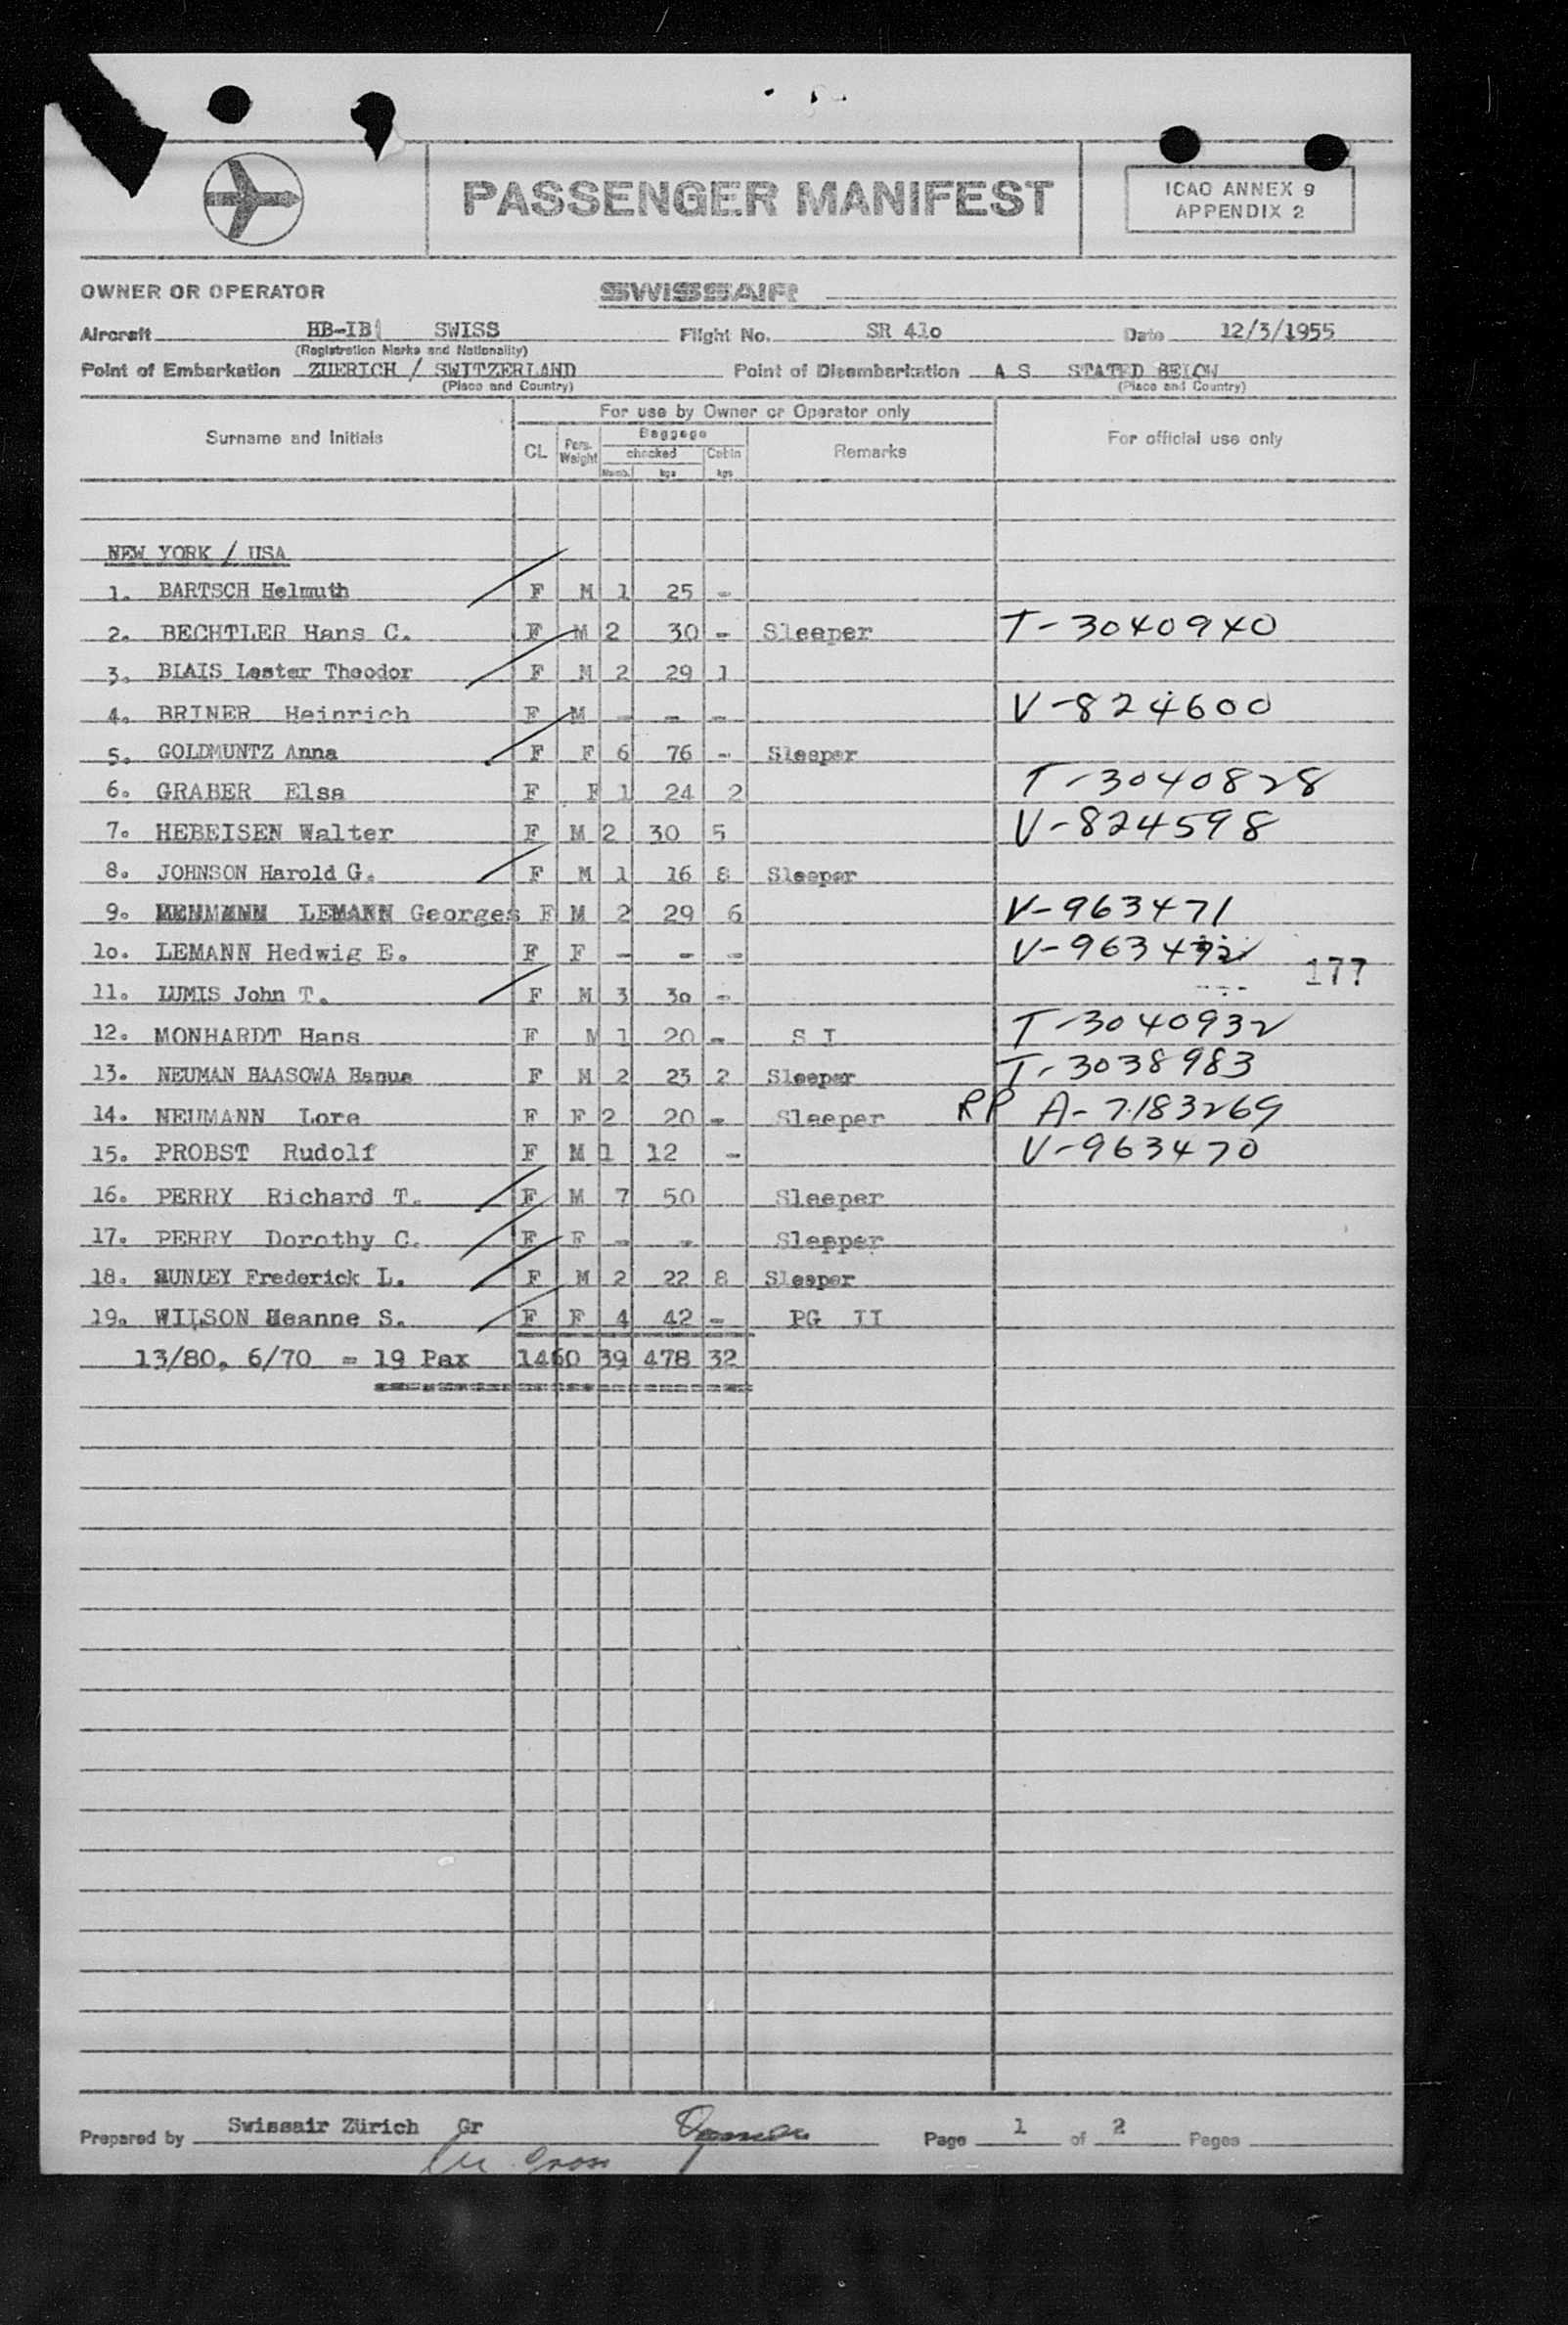 PASSENGER MANIFEST
ICAO ANNEX 9
APPENDIX 2
OWNER OR OPERATOR SWISSAIR
Aircraft HB-IB SWISS Flight No. SR 41o Date 12/3/1955
(Registration Marks and Nationality)
Point of Embarkation ZUERICH / SWITZERLAND Point of Disembarkation A S STATED BELOW
(Place and Country) (Place and Country)
Surname and Initials For use by Owner or Operator only For official use only
CL Pers. Weight Baggage Remarks
checked Cabin
Numb. kgs kgs
NEW YORK / USA
1. BARTSCH Helmuth F M 1 25 -
2. BECHTLER Hans C. F M 2 30 - Sleeper T-3040940
3. BLAIS Lester Theodor F M 2 29 1
4. BRINER Heinrich F M - - - V-824600
5. GOLDMUNTZ Anna F F 6 76 - Sleeper
6. GRABER Elsa F F 1 24 2 T-3040828
7. HEBEISEN Walter F M 2 30 5 V-824598
8. JOHNSON Harold G. F M 1 16 8 Sleeper
9. LEMANN Georges F M 2 29 6 V-963471
1o. LEMANN Hedwig E. F F - - - V-963472
177
11. LUMIS John T. F M 3 3o -
12. MONHARDT Hans F M 1 20 - S I T-3040932
13. NEUMAN HAASOWA Hanus F M 2 23 2 Sleeper T-3038983
14. NEUMANN Lore F F 2 20 - Sleeper RP A-7183269
15. PROBST Rudolf F M 1 12 - V-963470
16. PERRY Richard T. F M 7 50 Sleeper
17. PERRY Dorothy C. F F - - Sleeper
18. SUNLEY Frederick L. F M 2 22 8 Sleeper
19. WILSON Jeanne S. F F 4 42 - PG II
13/80, 6/70 = 19 Pax 1460 39 478 32
Prepared by Swissair Zürich Gr Page 1 of 2 Pages